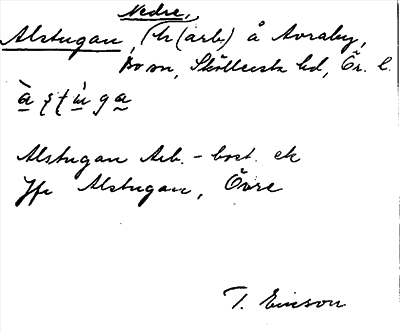 Nedre,
Alstugan, (h (arb) å Avraby,
Bo sn, Sköllersta hd, Ör. l.
Alstugan Arb.-bost. ek
Jfr Alstugan, Övre
T. Ericson